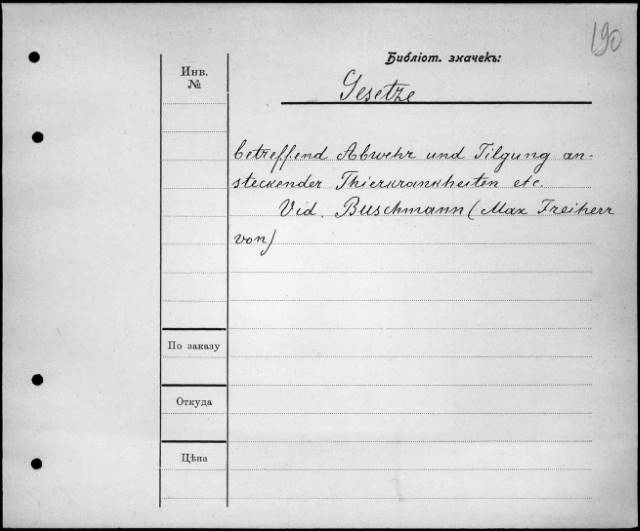 190
Библіот. значекъ:
Инв.
№
Gesetze
betreffend Abwehr und Tilgung an-
steckender Thierkrankheiten etc.
Vid. Buschmann (Max Freiherr
von)
По заказу
Откуда
Цѣна